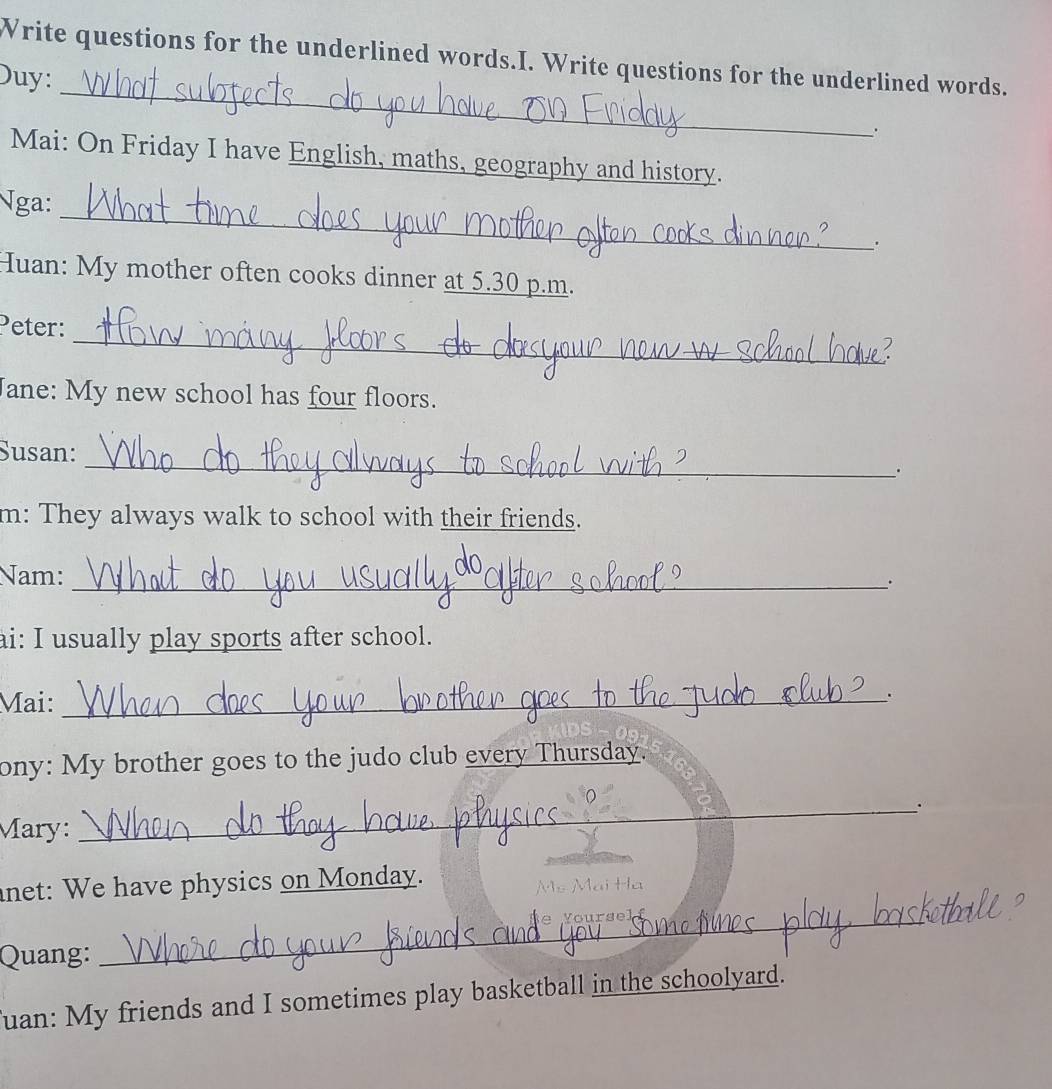 Write questions for the underlined words.I. Write questions for the underlined words.
Duy: What subjects do you have on Friday.
Mai: On Friday I have English, maths, geography and history.
Nga: What time does your mother often cooks dinner?.
Huan: My mother often cooks dinner at 5.30 p.m.
Peter: How many floors do does your new w school have?
Jane: My new school has four floors.
Susan: Who do they always to school with?.
m: They always walk to school with their friends.
Nam: What do you usually do after school?.
ai: I usually play sports after school.
Mai: When does your brother goes to the judo club?.
ony: My brother goes to the judo club every Thursday.
Mary: When do they have physics?.
anet: We have physics on Monday.
Quang: Where do your friends and you sometimes play basketballe?
Tuan: My friends and I sometimes play basketball in the schoolyard.
KIDS - 0915.163.704
Ms Mai Ha
Be Yourself